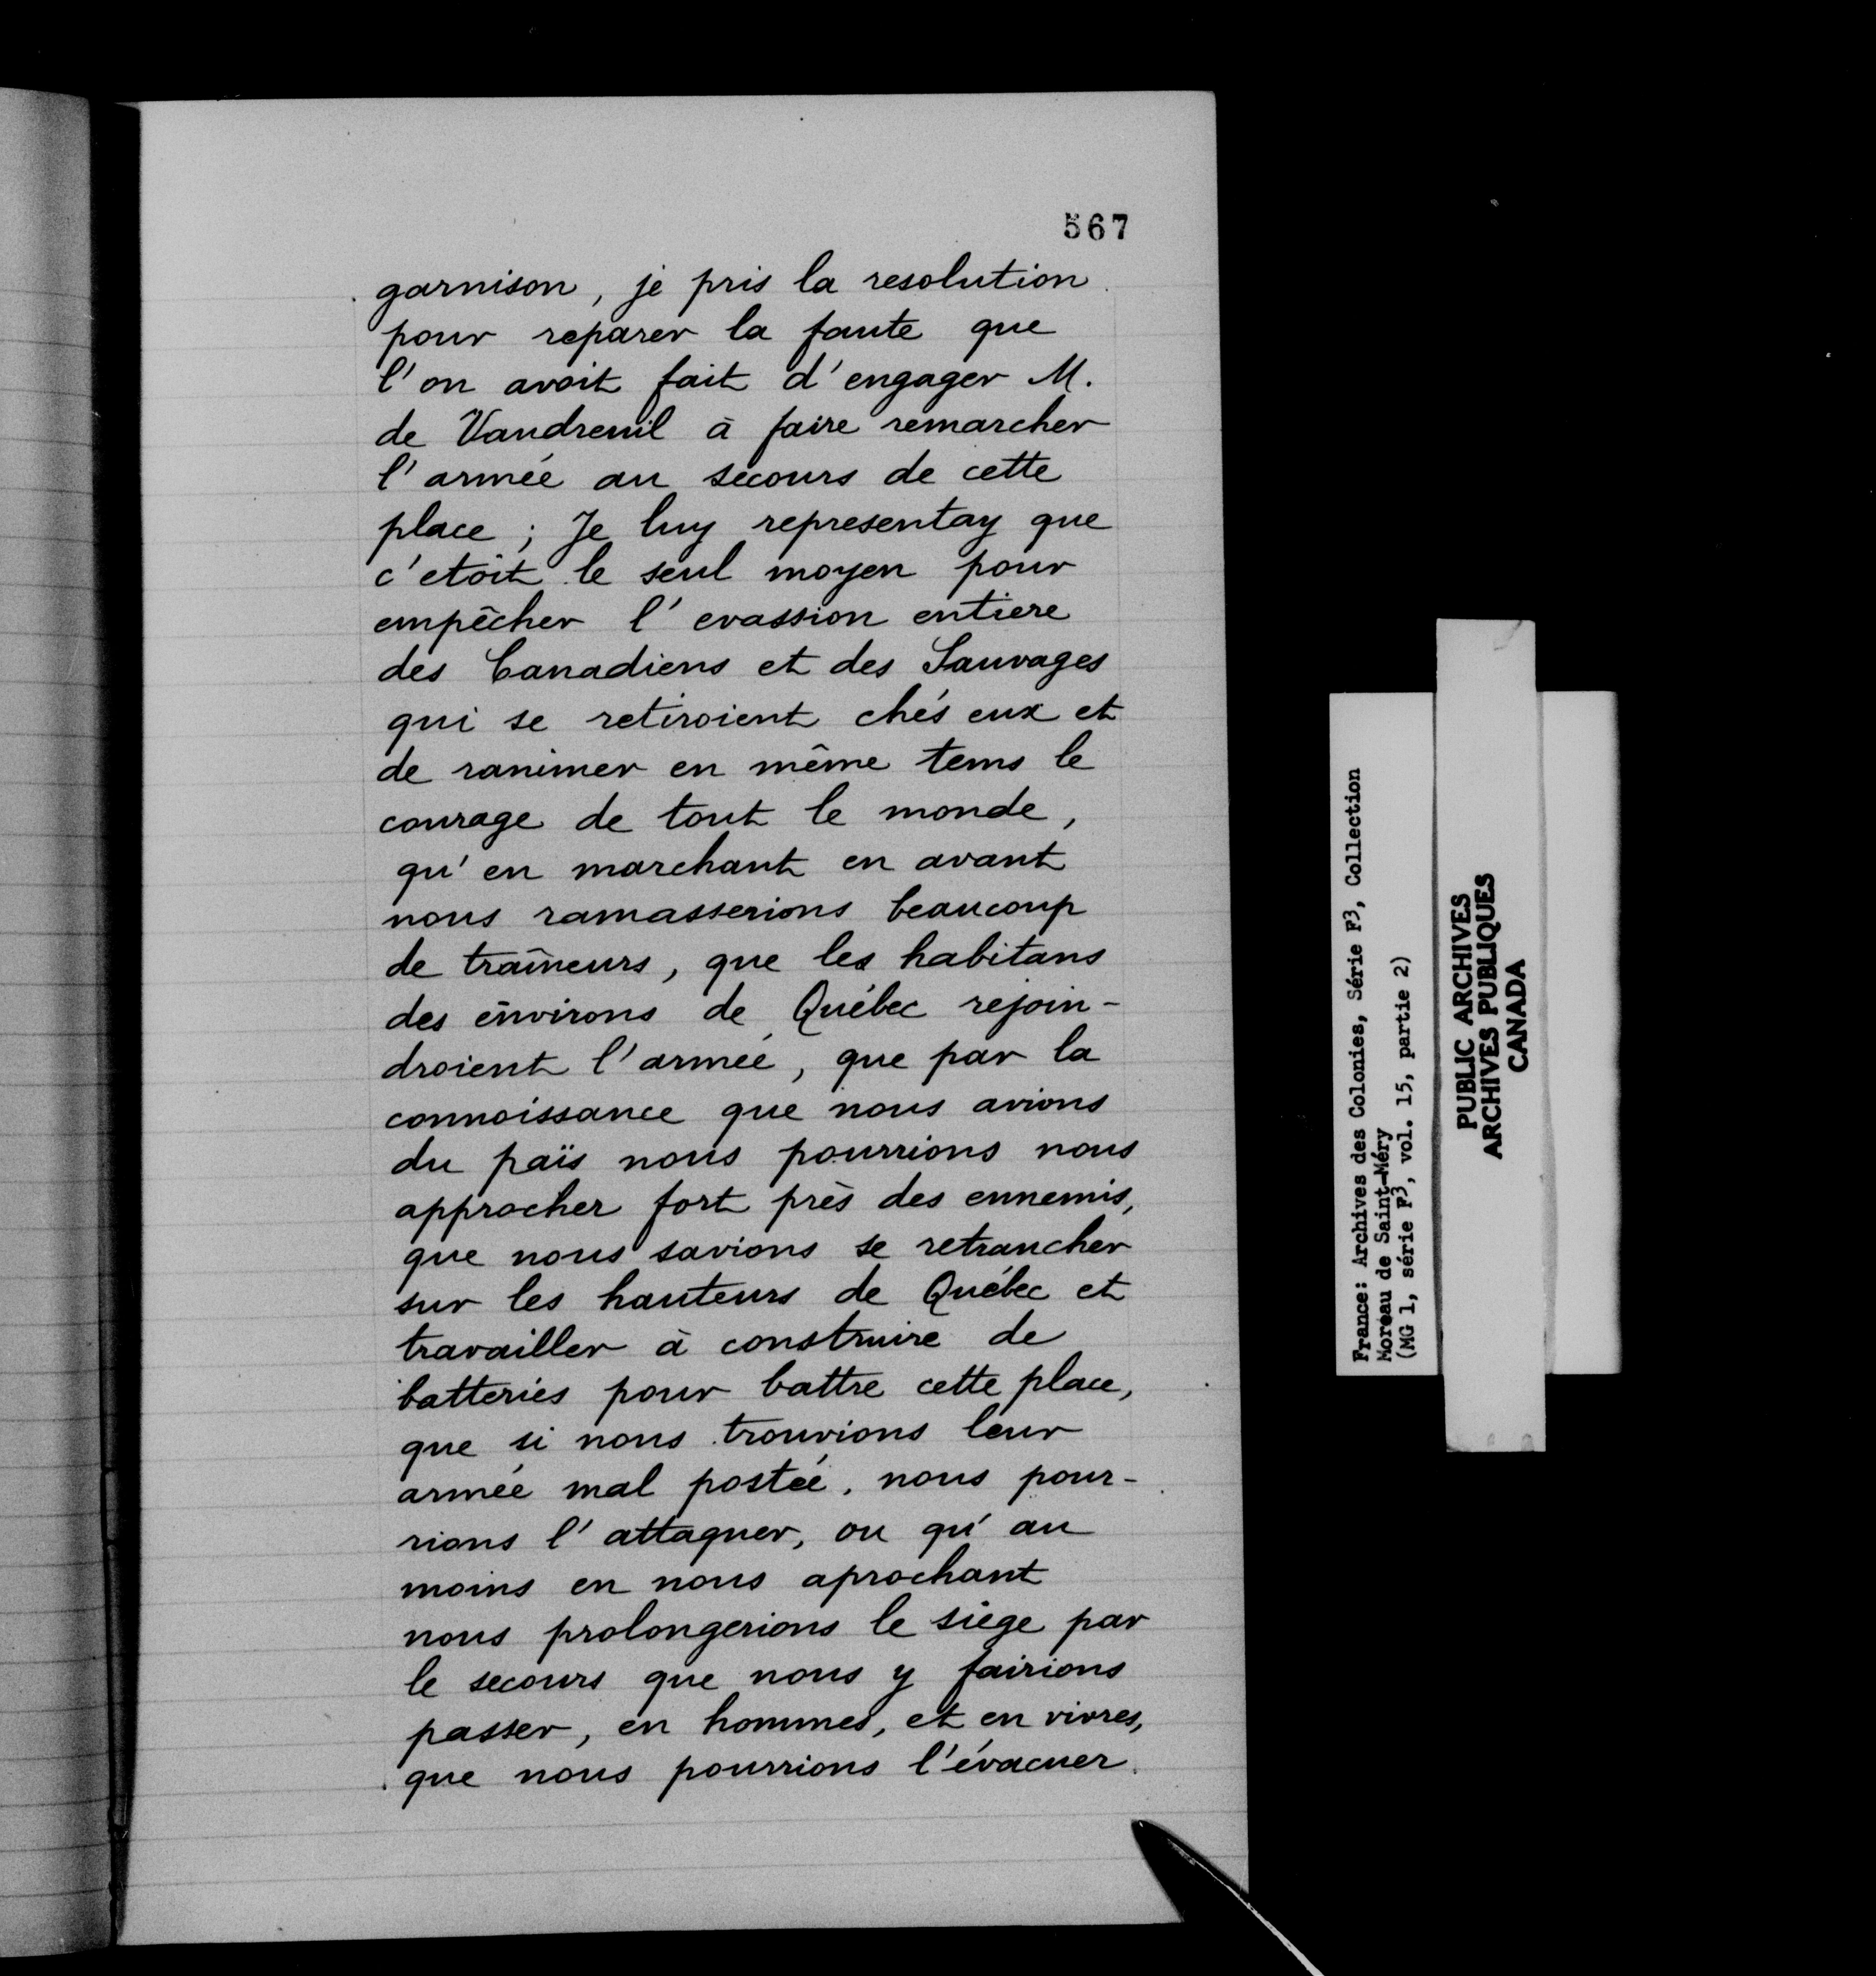 567
garnison, je pris la resolution
pour reparer la faute que
l'on avoit fait d'engager M.
de Vaudreuil à faire remarcher
l'armée au secours de cette
place ; Je luy representay que
c'etoit le seul moyen pour
empêcher l'evassion entiere
des Canadiens et des Sauvages
qui se retiroient chés eux et
de ranimer en même tems le
courage de tout le monde,
qu'en marchant en avant
nous ramasserions beaucoup
de traîneurs, que les habitans
des environs de Québec rejoin-
droient l'armée, que par la
connoissance que nous avions
du païs nous pourrions nous
approcher fort près des ennemis,
que nous savions se retrancher
sur les hauteurs de Québec et
travailler à construire de
batteries pour battre cette place,
que si nous trouvions leur
armée mal postée, nous pour-
rions l'attaquer, ou qu'au
moins en nous aprochant
nous prolongerions le siège par
le secours que nous y fairions
passer, en hommes, et en vivres,
que nous pourrions l'évacuer
France: Archives des Colonies, Série F3, Collection
Moreau de Saint-Méry
(MG 1, série F3, vol. 15, partie 2)
PUBLIC ARCHIVES
ARCHIVES PUBLIQUES
CANADA